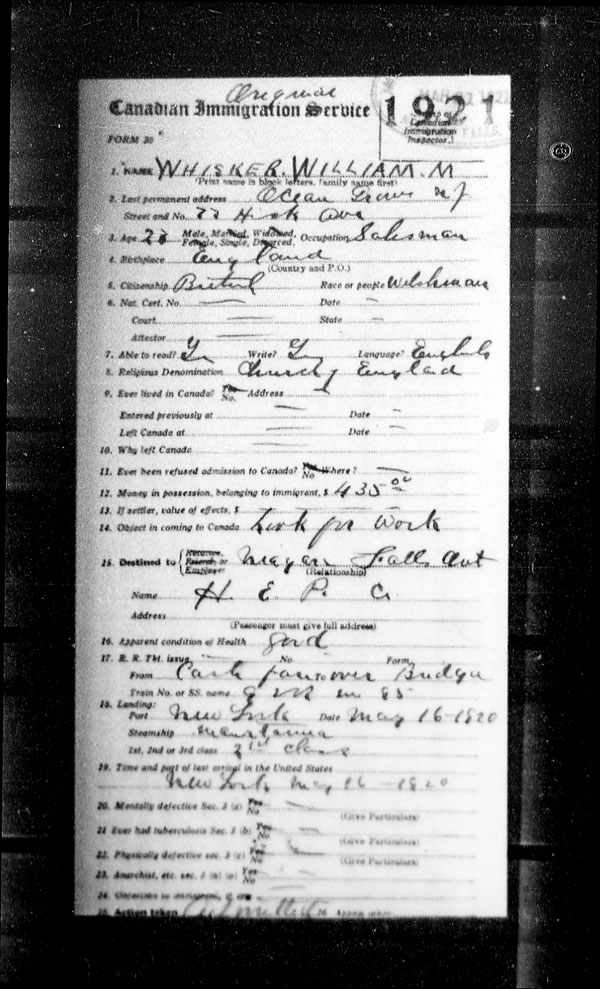 Original
Canadian Immigration Service 1921
FORM 30
Immigration
Inspector.)
1. NAME WHISKER. WILLIAM. M
(Print name in block letters, family name first)
2. Last permanent address Ocean Grove N J
Street and No. Ave
3. Age Male, Married, Widowed, Female, Single, Divorced, Occupation Salesman
4. Birthplace England
(Country and P.O.)
5. Citizenship British Race or people Welshman
6. Nat. Cert. No. — Date —
Court — State —
Attestor —
7. Able to read? Write? Language? English
8. Religious Denomination Church of England
9. Ever lived in Canada? Yes No. Address —
Entered previously at — Date —
Left Canada at — Date —
10. Why left Canada —
11. Ever been refused admission to Canada? Yes No Where? —
12. Money in possession, belonging to immigrant, $ 435 00
13. If settler, value of effects, $ —
14. Object in coming to Canada Look for Work
15. Destined to { Relative, Friend, or Employer Falls Ont
(Relationship)
Name H. E. P. Co
Address
(Passenger must give full address)
16. Apparent condition of Health good
17. R. R. Tkt. issue No. Form
From over Bridge
Train No. or SS. name 85
18. Landing:
Port New York Date May 16-1920
Steamship
1st, 2nd or 3rd class class
19. Time and port of last arrival in the United States
New York May 16 - 1920
20. Mentally defective Sec. 3 (a) Yes No —
(Give Particulars)
21 Ever had tuberculosis Sec. 3 (b) Yes No —
(Give Particulars)
22. Physically defective sec. 3 (c) Yes No —
(Give Particulars)
23. Anarchist, etc. sec. 3 Yes No —
24. Objection to immigrant, if any —
25. Action taken Admitted 26